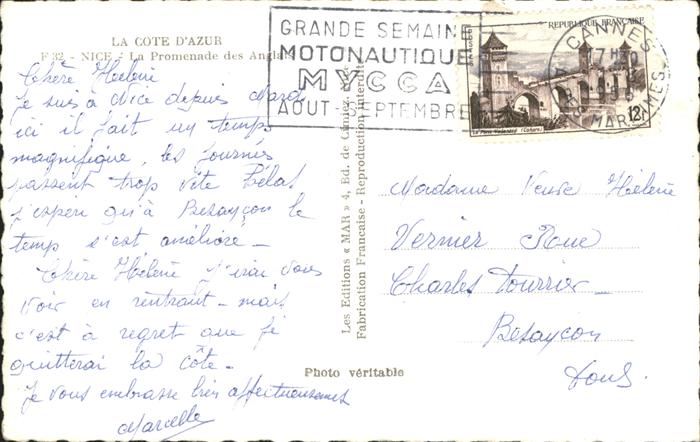 LA COTE D'AZUR
F 32 - NICE - La Promenade des Anglais
Chère Hélène
Je suis à Nice depuis Mardi
ici il fait un temps
magnifique, les journés
passent trop vite Hélas
j'espère qu'à Besançon le
temps s'est amélioré -
Chère Hélène j'irai vous
voir en rentrant - mais
c'est à regret que je
quitterai la côte -
Je vous embrasse bien affectueusement
Marcelle
Les Editions « MAR » 4, Ed. de Cimiez, Nice
Fabrication Française - Reproduction Interdite
Photo véritable
GRANDE SEMAINE
MOTONAUTIQUE
MYCCA
AOUT-SEPTEMBRE
REPUBLIQUE FRANÇAISE
POSTES
Le Pont Valentré (Cahors)
12F
CANNES
17H
MARITIMES
Madame Veuve Hélène
Vernier Rue
Charles Fourrier
Besançon
Doubs.